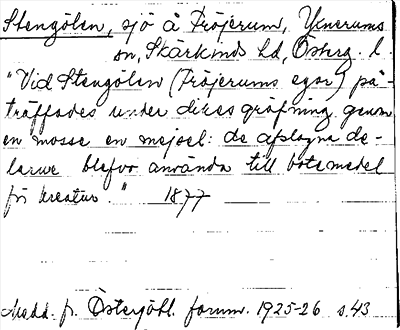 Stengölen, sjö å Fröjerum, Yxnerums
sn, Skärkinds hd, Österg. l.
"Vid Stengölen (Fröjerums egor) på-
träffades under dikesgräfning genom
en mosse en mejsel: de afslagna de-
larne blefvo använda till botemedel
för kreatur." 1877
Medd. fr. Östergötl. fornm. 1925-26 s. 43